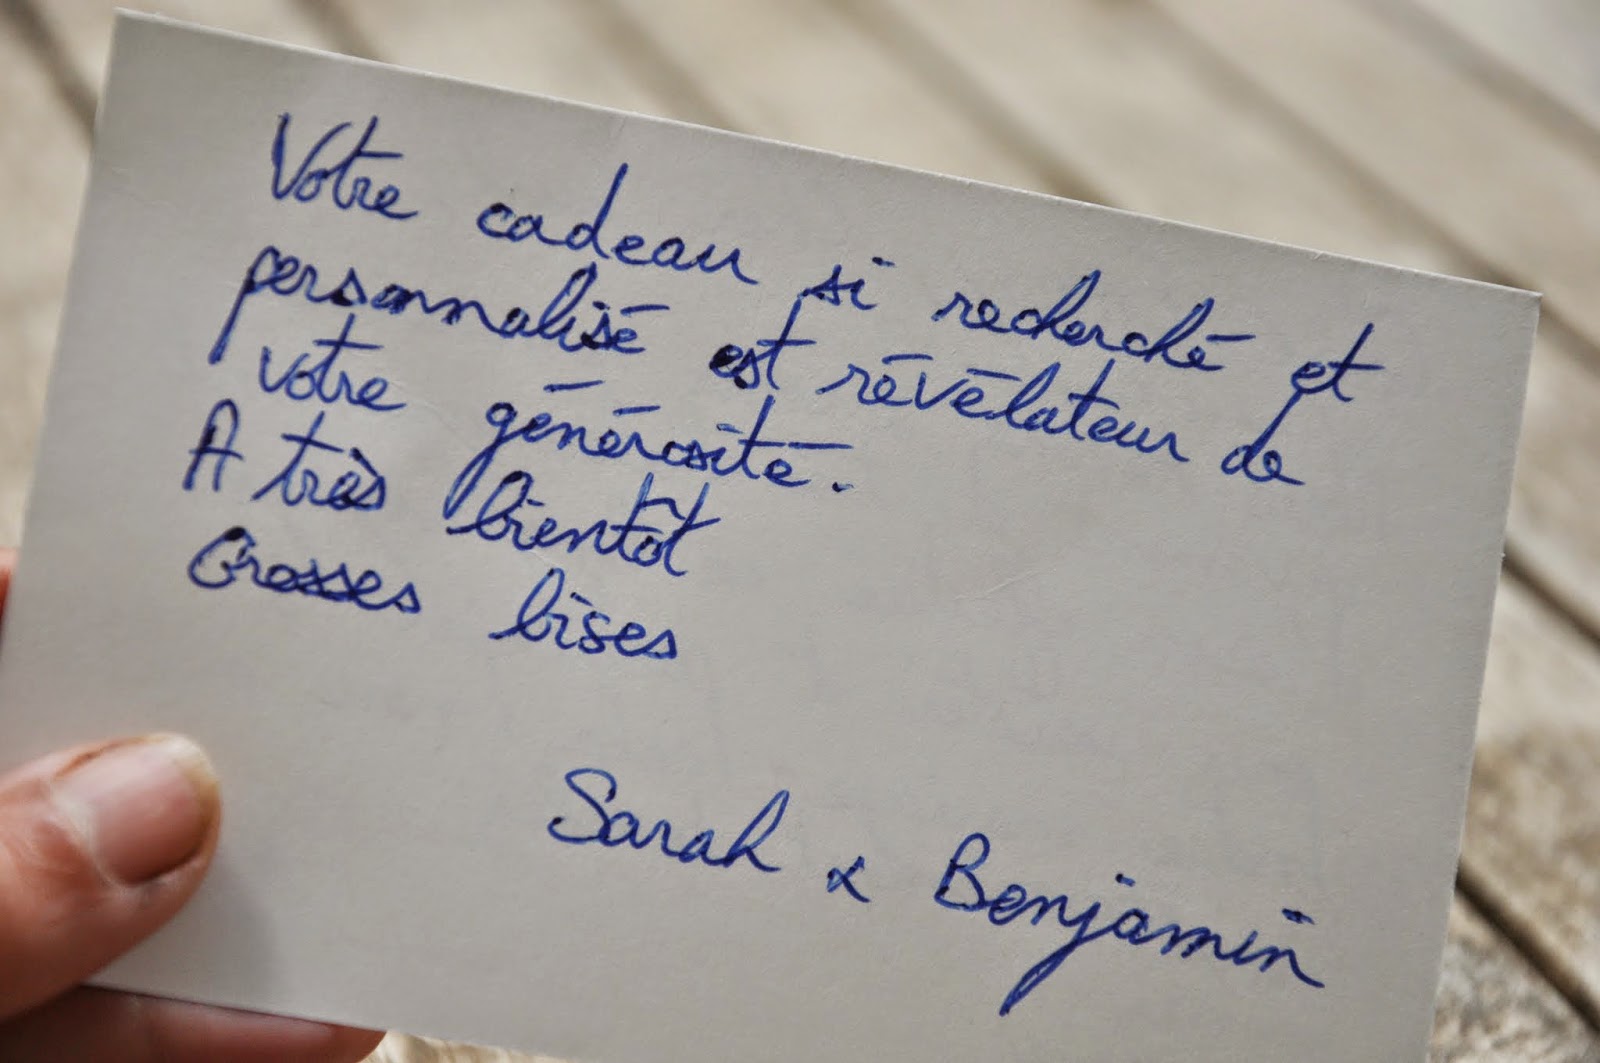 Votre cadeau si recherché et
personnalisé est révélateur de
votre générosité.
A très bientôt
Grosses bises
Sarah & Benjamin